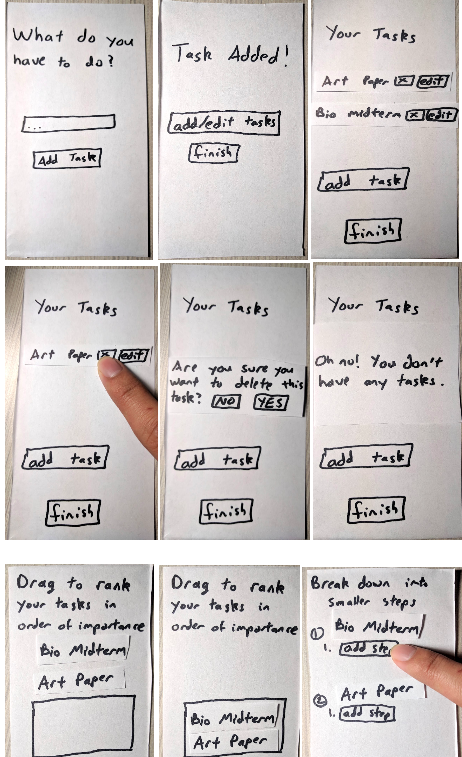 What do you
have to do?
...
Add Task
Task Added!
add/edit tasks
finish
Your Tasks
Art Paper x edit
Bio midterm x edit
add task
finish
Your Tasks
Art Paper x edit
add task
finish
Your Tasks
Are you sure you
want to delete this
task? NO YES
add task
finish
Your Tasks
Oh no! You don't
have any tasks.
add task
finish
Drag to rank
your tasks in
order of importance
Bio Midterm
Art Paper
Drag to rank
your tasks in
order of importance
Bio Midterm
Art Paper
Break down into
smaller steps
① Bio Midterm
1. add step
② Art Paper
1. add step